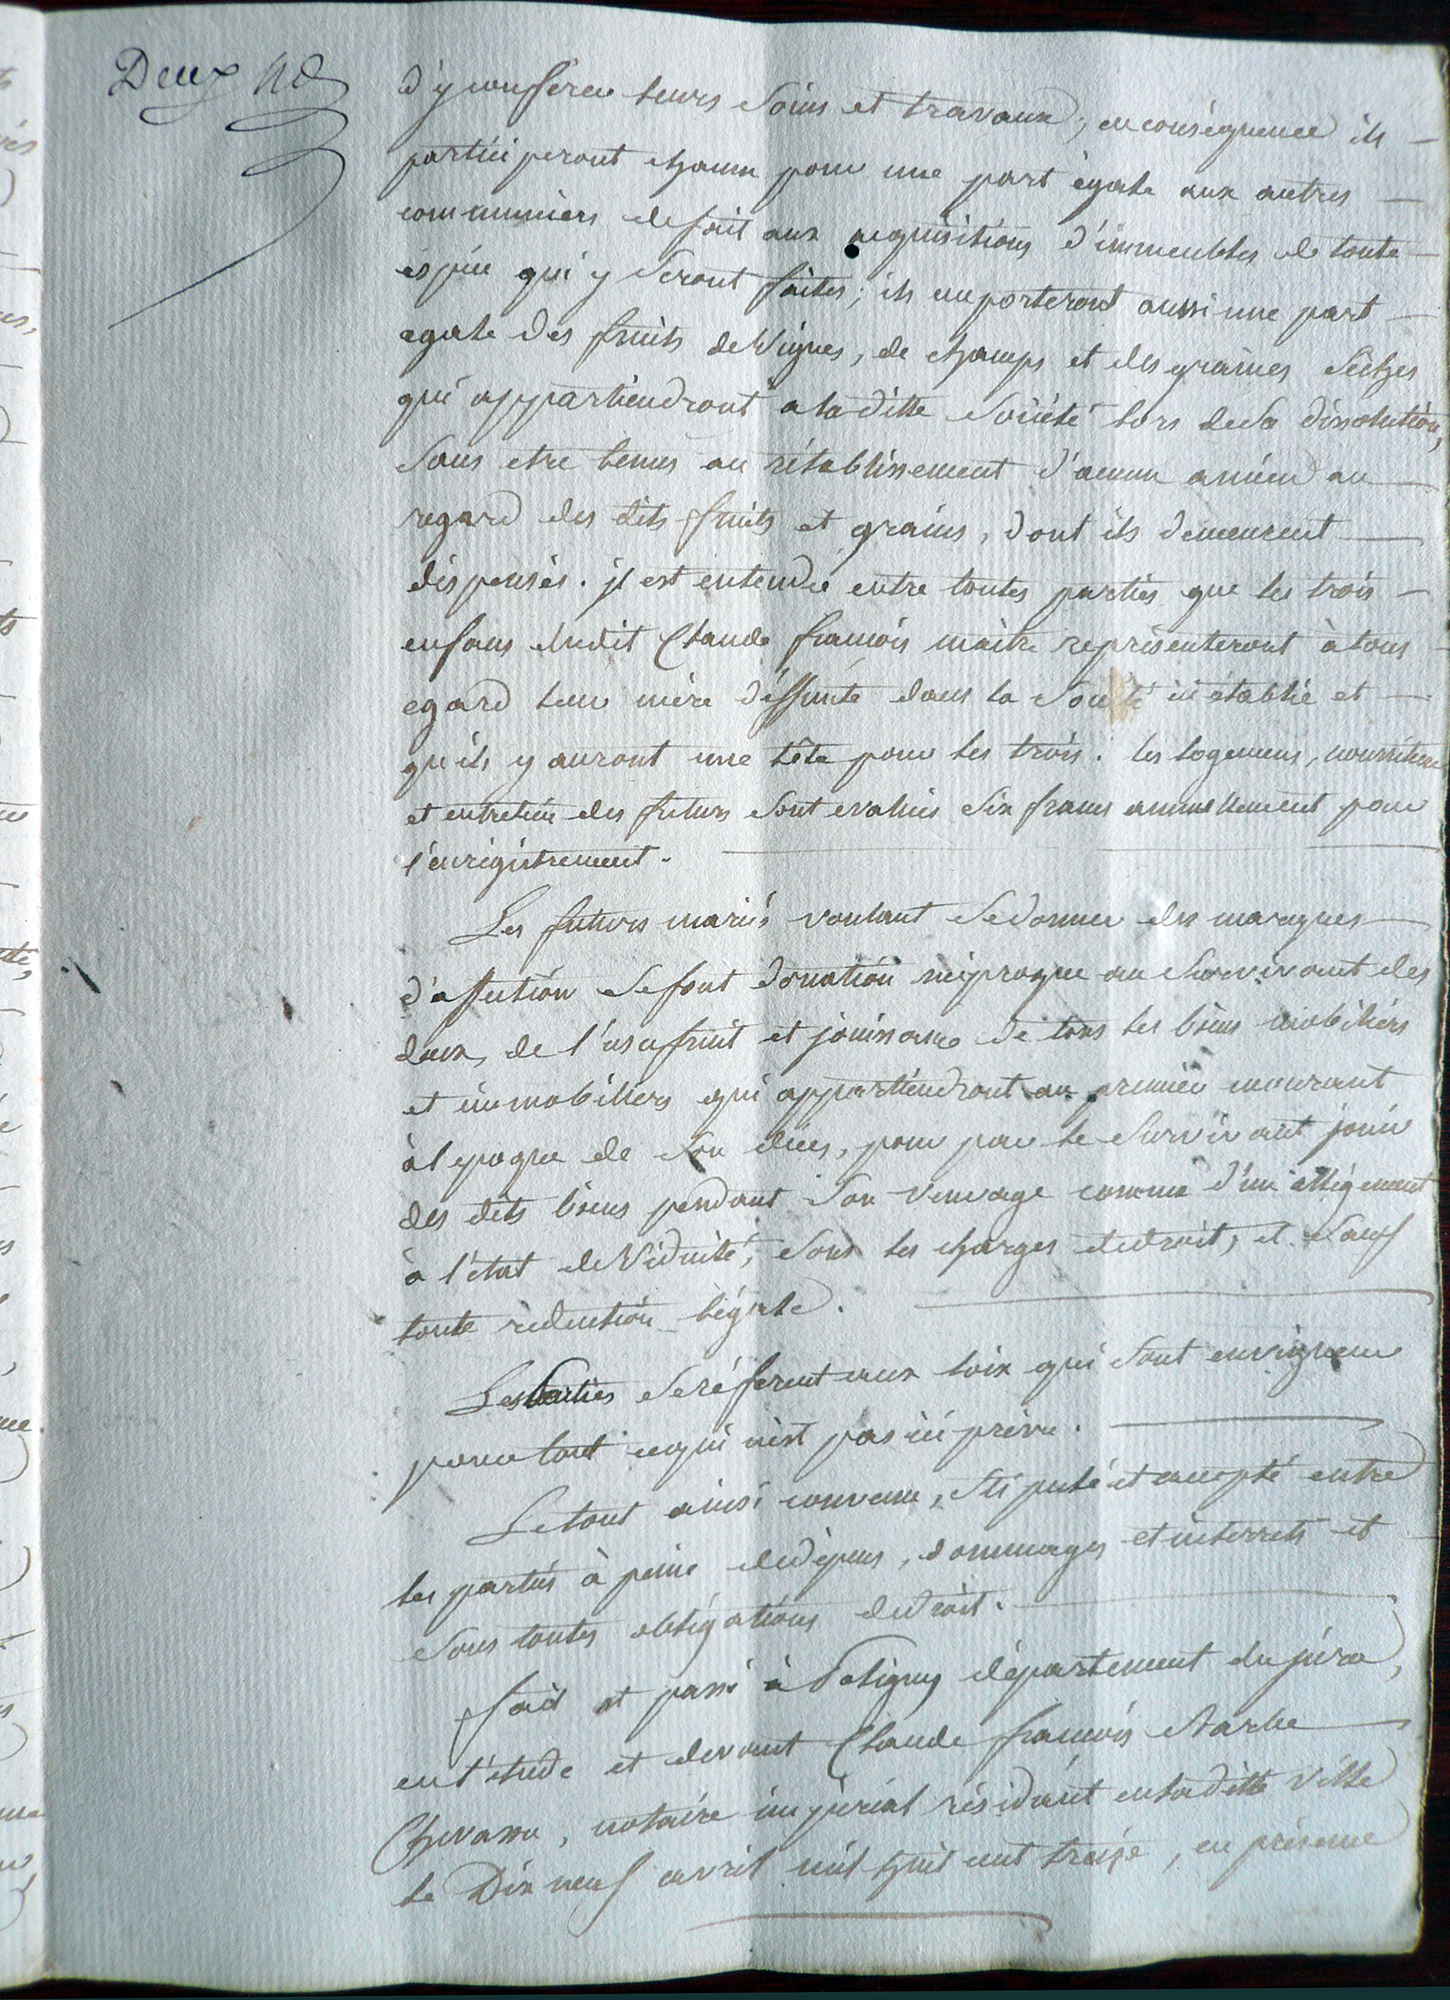 Deux
d'y conférer leurs soins et travaux; en conséquence ils
participeront chacun pour une part égale aux autres
communiers de fait aux acquisitions d'immeubles de toute
espèce qui y seront faites; ils emporteront aussi une part
egale des fruits de vignes, de champs et des graines sèches
qui appartiendront a la ditte société lors de sa dissolution,
sans etre tenus au rétablissement d'aucun amieu au
regard des dits fruits et grains, dont ils demeurent
dispensés. il est entendu entre toutes parties que les trois
enfans dudit Claude françois maitre représenteront à tous
egard leur mère déffunte dans la société ici établie et
qu'ils y auront une tête pour les trois. les logemens, nourriture
et entretien des futurs sont evalués six francs annuellement pour
l'enrégistrement.
Les futurs mariés voulant se donner des marques
d'affection se font donation réciproque au survivant des
deux, de l'usufruit et jouissance de tous les biens mobiliers
et immobiliers qui appartiendront au premier mourant
à l'epoque de son décès, pour par le survivant jouir
des dits biens pendant son veuvage comme d'un allégement
à l'état de viduité, sous les charges de droit, et sauf
toute réduction légale.
Les Parties se réferent aux loix qui sont en vigueur
pour tout ce qui n'est pas ici prévu.
Le tout ainsi convenu, stipulé et accepté entre
les parties à peine de dépens, dommages et interrets et
sous toutes obligations de droit.
fait et passé à Poligny département du jura,
en l'étude et devant Claude françois Marie
Chevassu, notaire impérial résidant en la ditte ville
le Dix neuf avril mil huit cent treize, en présence